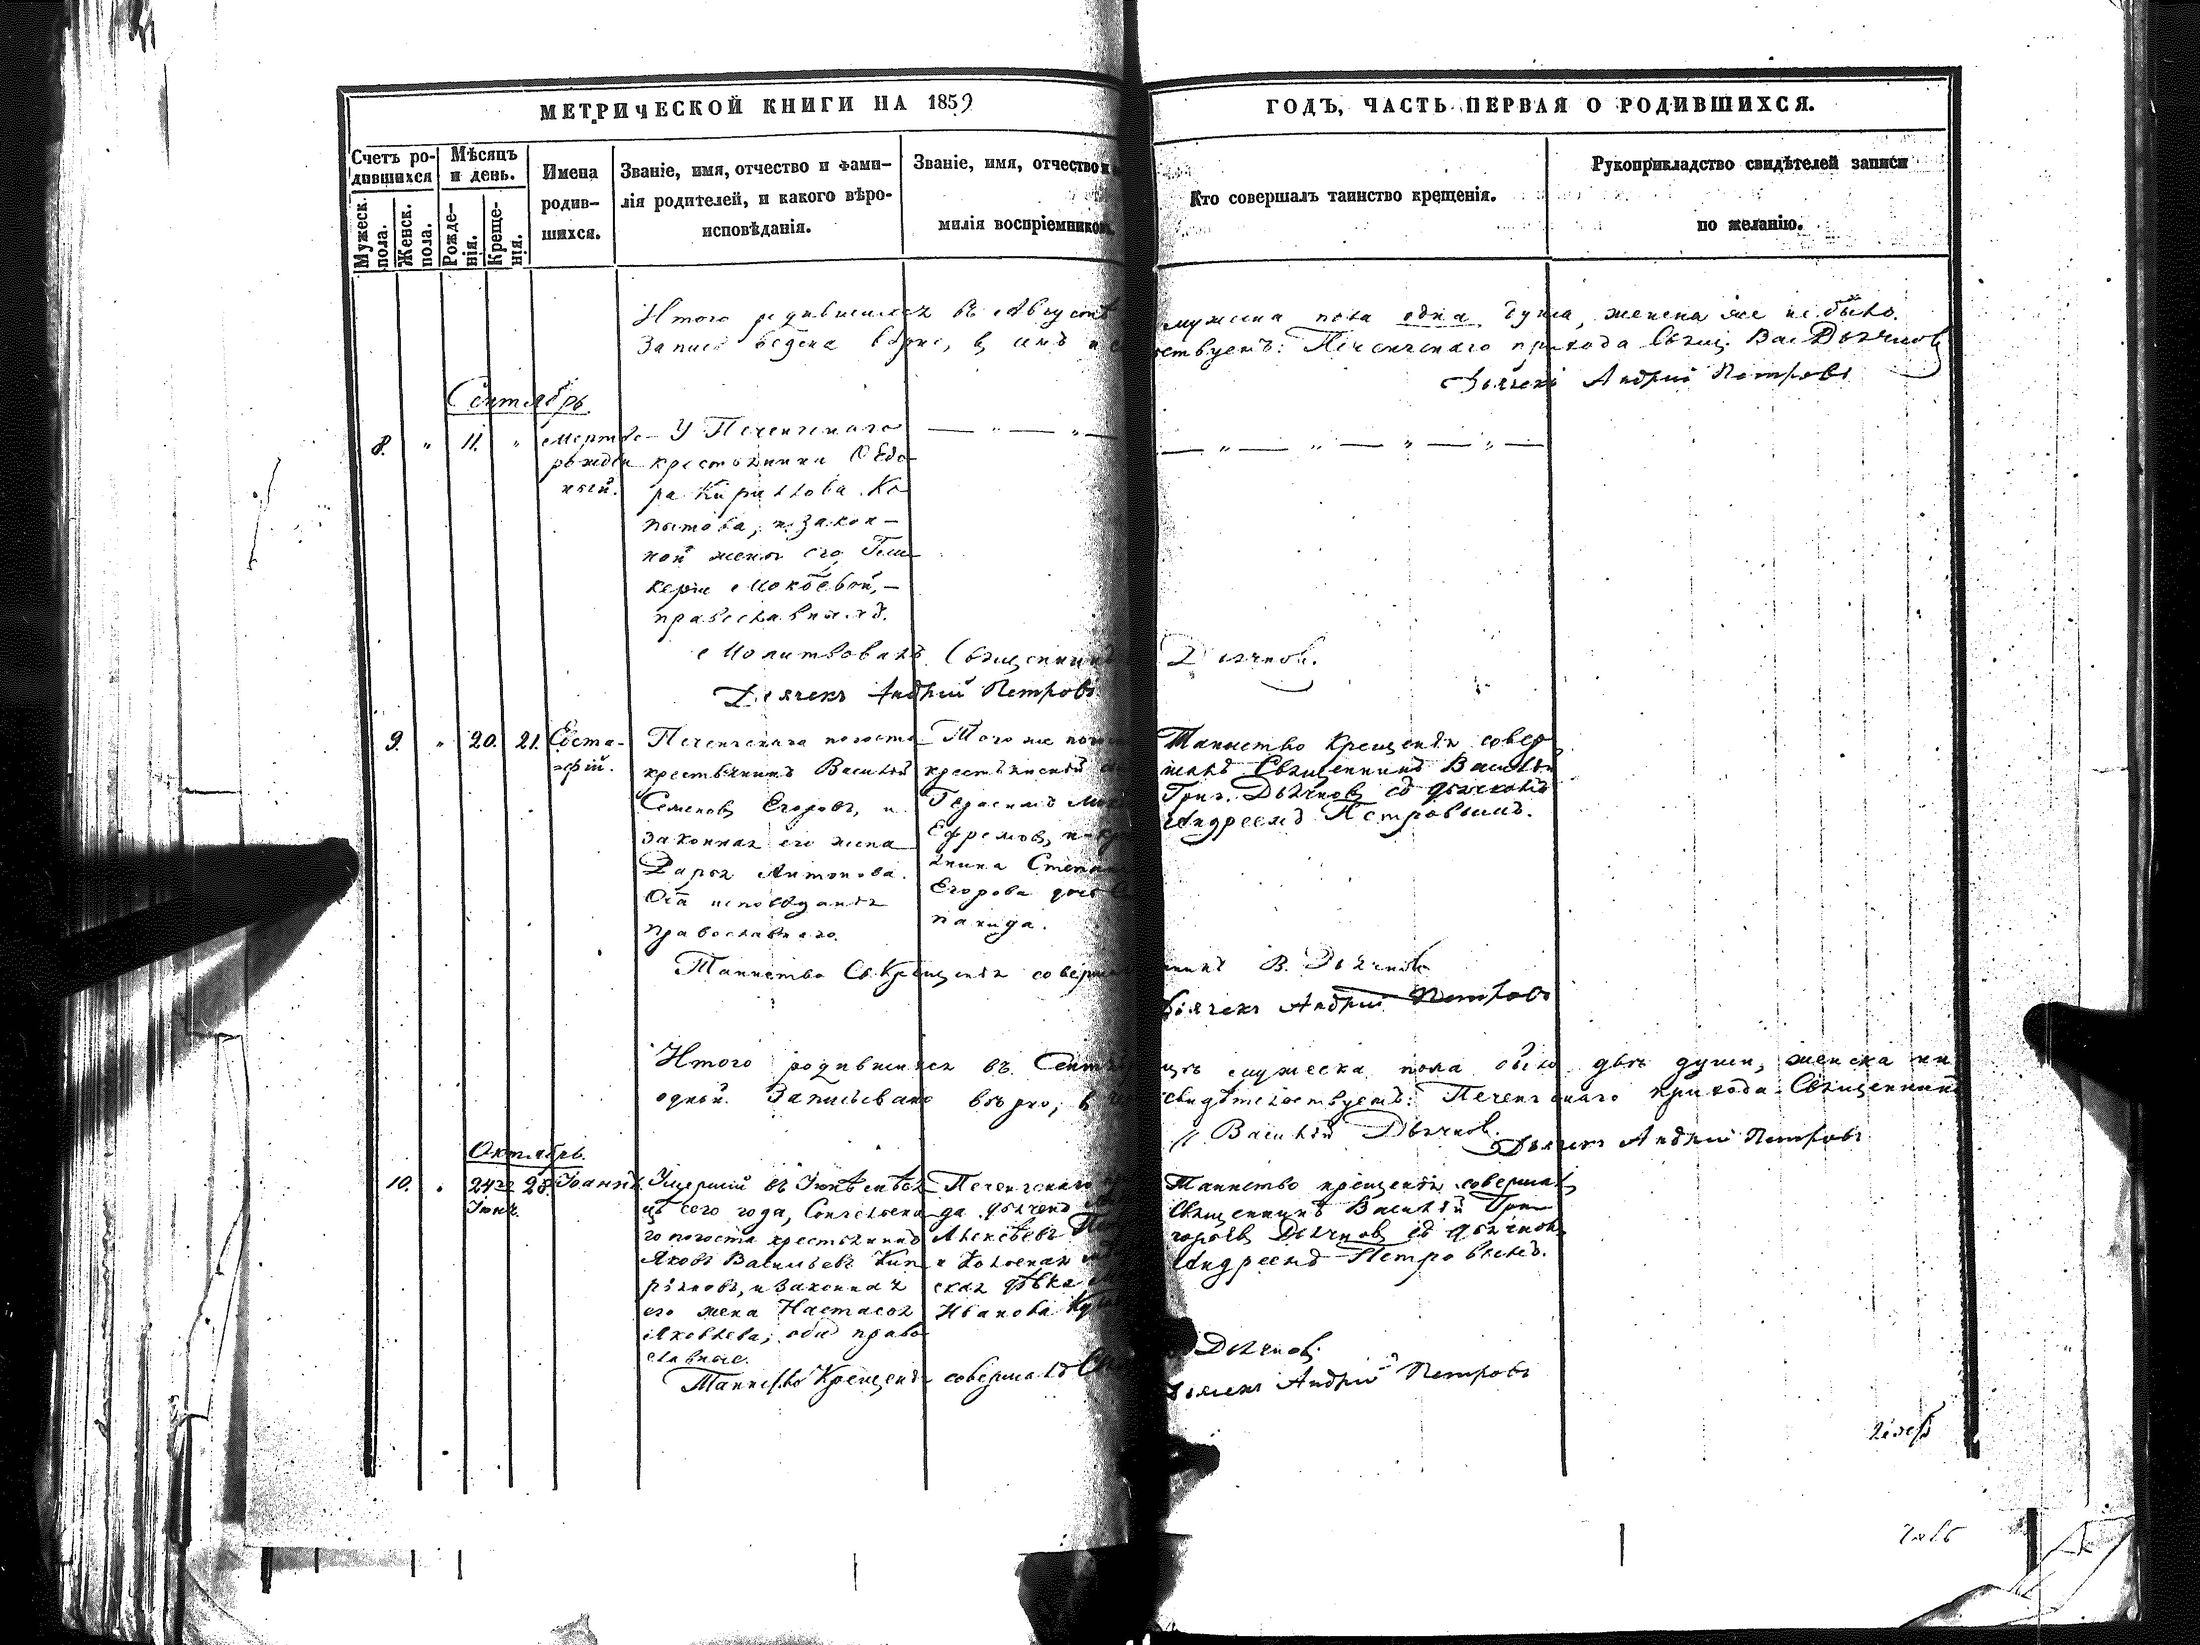 МЕТРИЧЕСКОЙ КНИГИ НА 1859
ГОДЪ, ЧАСТЬ ПЕРВАЯ О РОДИВШИХСЯ.
Счетъ ро-
дившихся
Мужеск.
пола.
Женск.
пола.
Мѣсяцъ
и день.
Рожде-
нія.
Креще-
нія.
Имена
родив-
шихся.
Званіе, имя, отчество и фами-
лія родителей, и какого вѣро-
исповѣданія.
Званіе, имя, отчество и
милія воспріемниковъ.
Кто совершалъ таинство крещенія.
Рукоприкладство свидѣтелей записи
по желанію.
Итого родившихся въ Августѣ мужеска пола одна душа, женска же не было.
Запись ведена вѣрно, въ чемъ и свидѣтельствуетъ: Печенгскаго прихода Свящ. Вас Дьячков
Дьячекъ Андрей Петровъ
Сентябрь.
8. " 11. "
Мертво-
рожден
ный.
У Печенгскаго
крестьянина Ѳедо
ра Кириллова Ко
пытова, и закон-
ной жены его Гли
керіи Мокѣевой,-
православныхъ.
Молитвовалъ Священникъ Дьячков.
Дьячекъ Андрей Петровъ
9. " 20. 21.
Евста-
фій.
Печенгскаго погоста
крестьянинъ Василій
Семеновъ Егоровъ, и
законная его жена
Дарья Антонова.
Оба исповѣданія
православнаго.
Того же
крестьянской
Герасимъ
Ефремовъ, и
янина
Егорова
нанида.
Таинство Крещенія совер
шалъ Священникъ Василій
Григ. Дьячковъ съ дьячкомъ
Андреемъ Петровымъ.
Таинство Св. Крещенія В. Дьячковъ
Дьячекъ Андрей Петровъ
Итого родившихся въ мужеска пола было двѣ души, женска ни
одной. Записывано вѣрно, свидѣтельствуетъ: Печенгскаго прихода Священникъ
Василій Дьячков.
Дьячекъ Андрей Петровъ
Октябрь.
10. " 24го 28.
Іюня.
Іоаннъ.
Умершій въ Іюнѣ мѣся
цѣ сего года, Сонгельска
го погоста крестьянинъ
Яковъ Васильевъ Кип
ріяновъ, и законная
его жена Настасья
Яковлева; оба право
славные.
Печенгскаго
да дьячекъ
Алексѣевъ
и Кольская
ская дѣвка
Иванова
Таинство крещенія совершалъ
Священникъ Василій Гри
горьевъ Дьячковъ съ дьячком
Андреемъ Петровымъ.
Таинство Крещенія совершалъ Дьячковъ.
Дьячекъ Андрей Петровъ